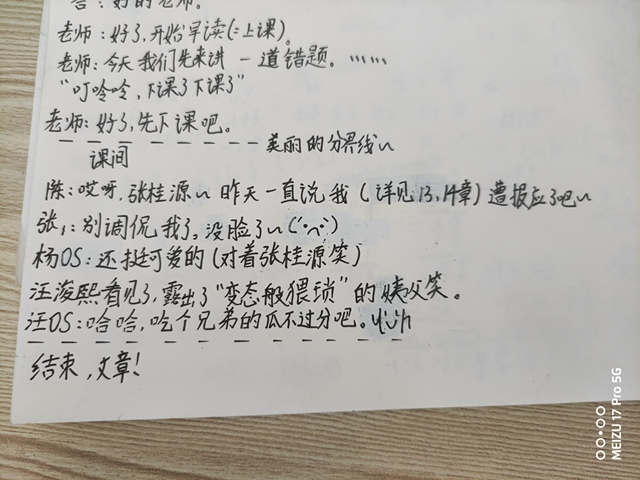 答：好的老师。
老师：好了，开始早读(=上课)。
老师：今天我们先来讲一道错题。……
“叮呤呤，下课了下课了”
老师：好了，先下课吧。
美丽的分界线~
课间
陈：哎呀，张桂源~昨天一直说我（详见13,14章）遭报应了吧~
张：别调侃我了。没脸了~
杨OS：还挺可爱的(对着张桂源笑)
汪浚熙看见了，露出了“变态般猥琐”的姨父笑。
汪OS：哈哈，吃个兄弟的瓜不过分吧。
结束，文章！
MEIZU 17 Pro 5G